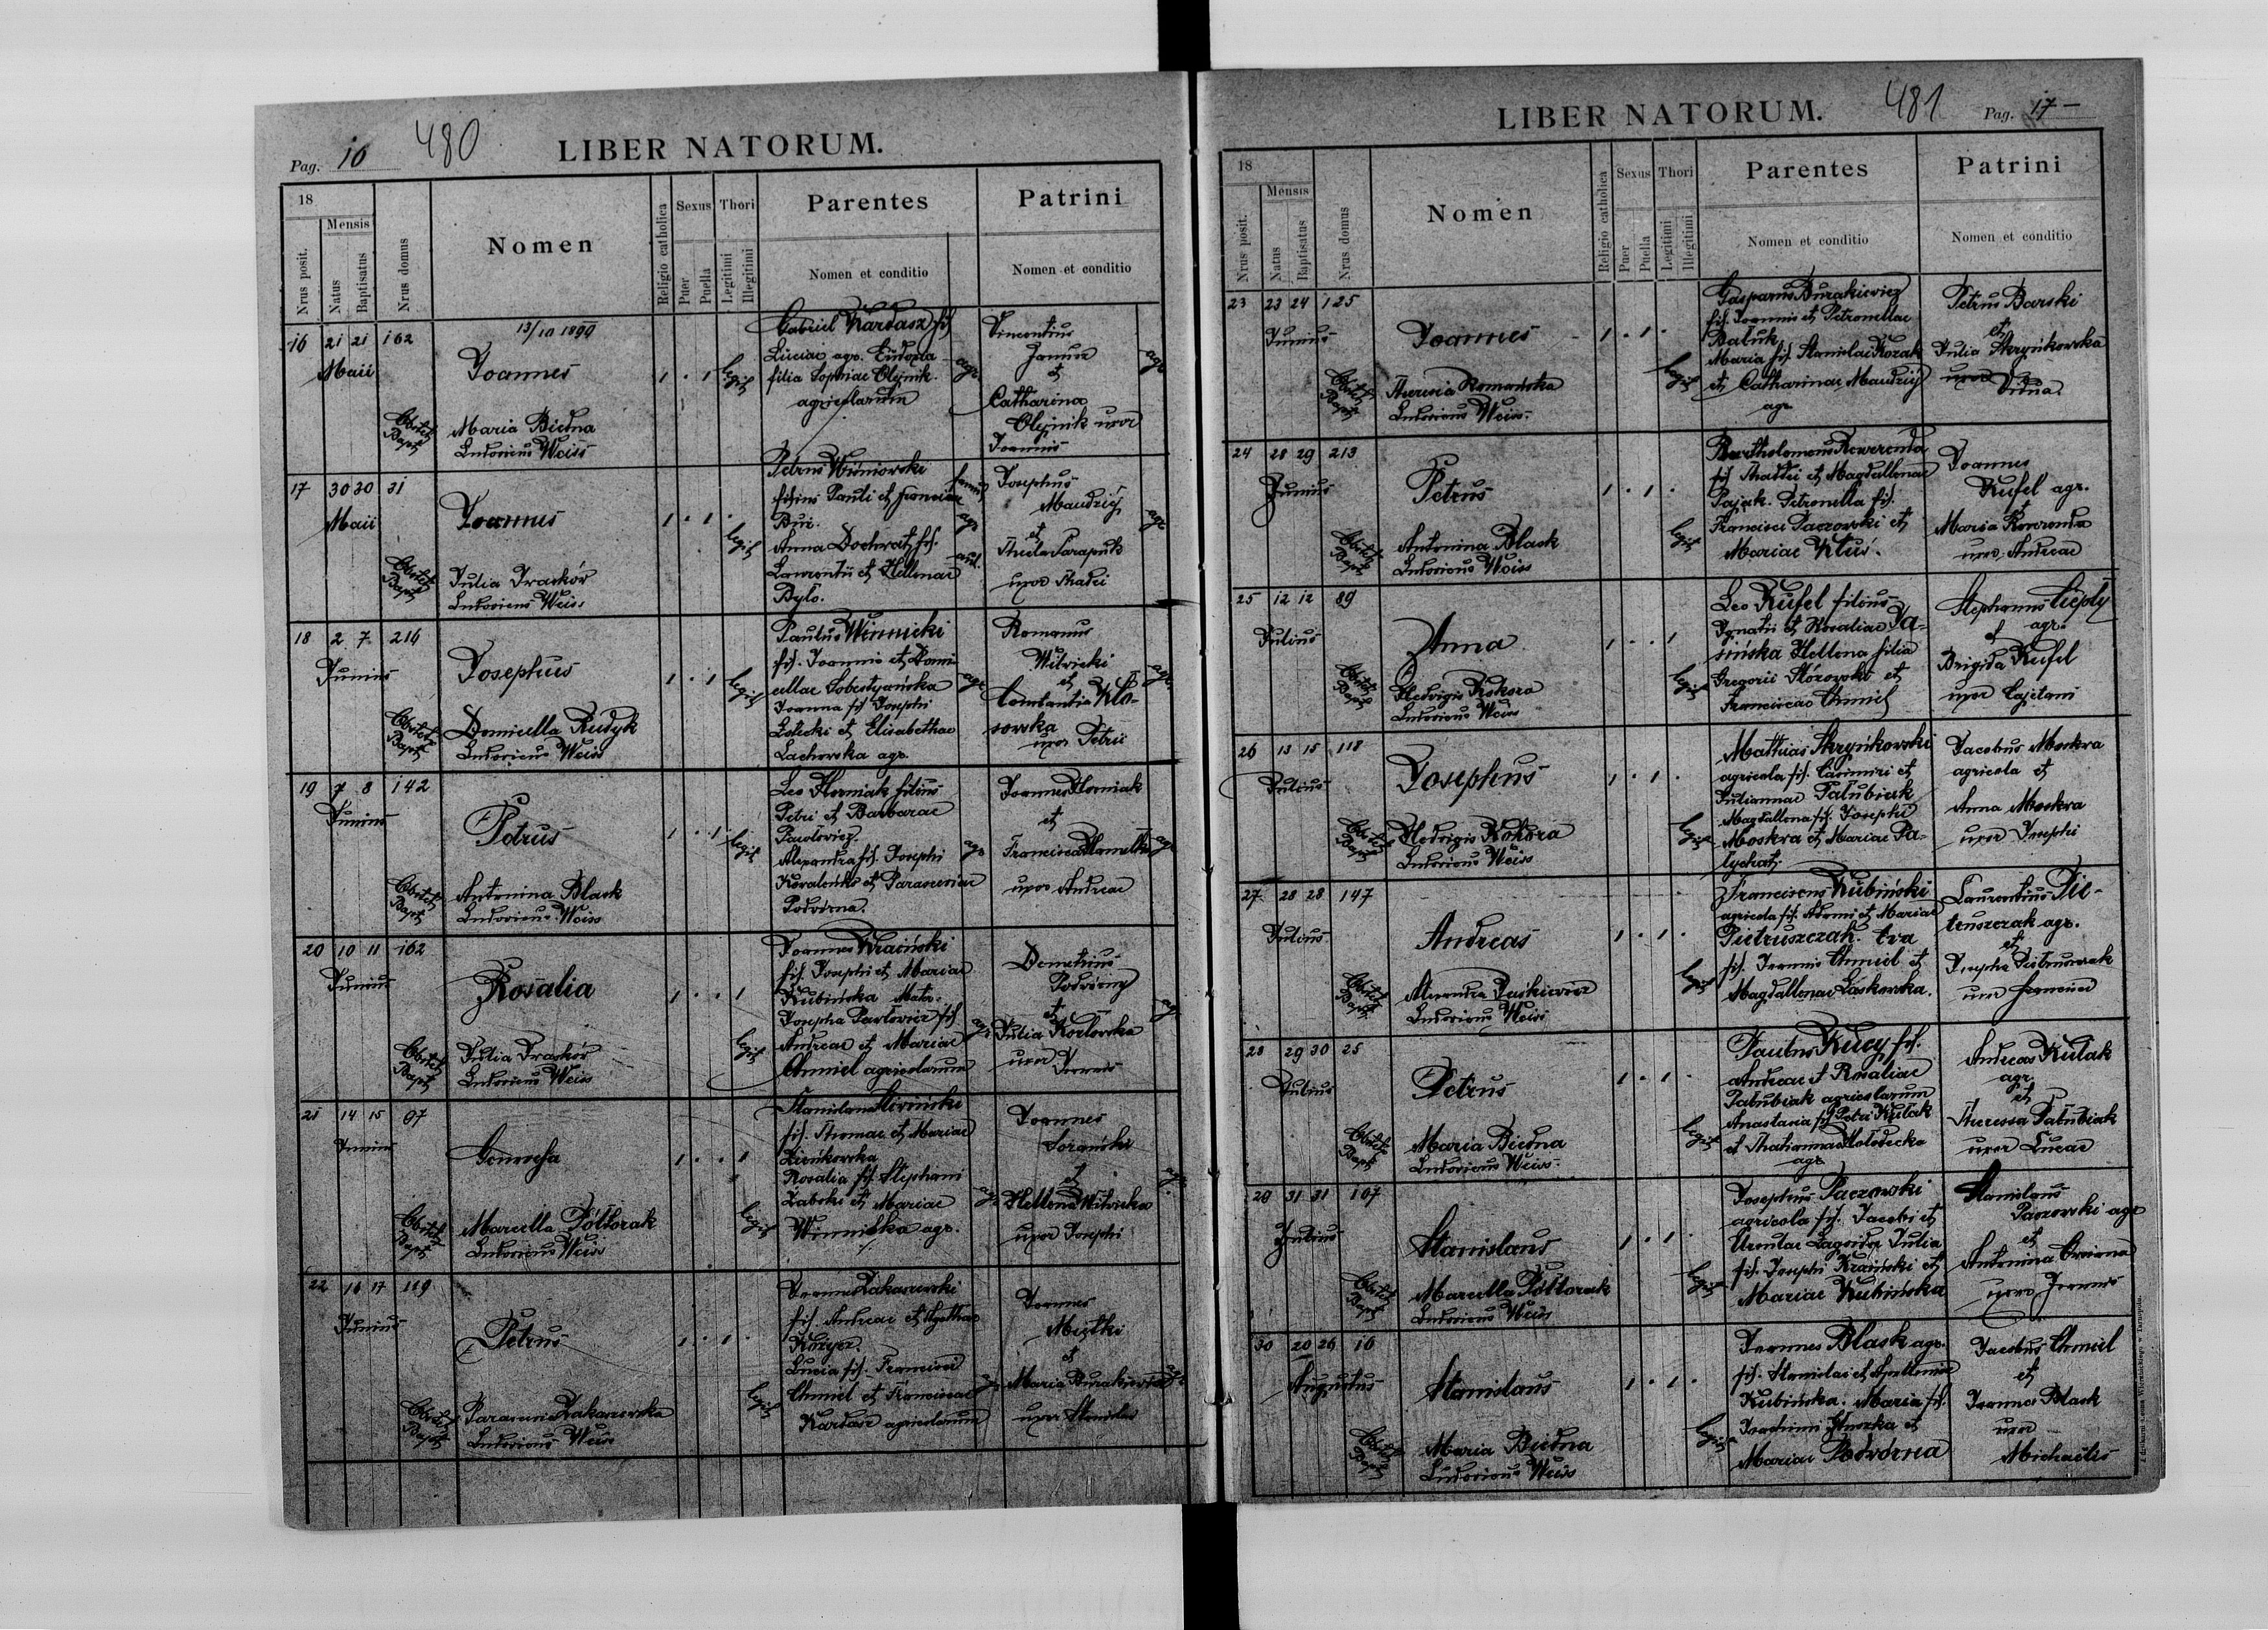 Pag. 16 480 LIBER NATORUM.
18
Mensis
Nrus posit.
Natus
Baptisatus
Nrus domus
Nomen
Religio catholica
Sexus
Puer
Puella
Thori
Legitimi
Illegitimi
Parentes
Nomen et conditio
Patrini
Nomen et conditio
16 21 21 162
Maii
13/10 1890
Joannes
Obstet Maria Biedna
Bapt Ludovicus Weiss
1 · 1
legit
Gabriel Kardasz fil
Luciae agr. Eudopia
filia Sophiae Olejnik
agricolarum
agr
Vincentius
Janusz
et
Catharina
Olejnik uxor
Joannis
agr
17 30 30 31
Maii
Joannes
Obstet Julia Traskór
Bapt Ludovicus Weiss
1 · 1 ·
legit
Petrus Wiśniowski
filius Pauli et Franciscae
Buć.
Anna Dochwat fil.
Laurentii et Hellenae
Było.
agr
Josephus
Maudzij
et
Thecla Parapuk
uxor Thadei
agr
18 2 7 216
Junius
Josephus
Obstet Domicella Rudyk
Bapt Ludovicus Weiss
1 · 1
legit
Paulus Winnicki
fil. Joannis et Domi-
cellae Sobestyańska
Joanna fil Josephi
Łotocki et Elisabethae
Lachowska agr.
agr
Romanus
Witwicki
et
Constantia Kło-
sowska
uxor Petrii
agr.
19 7 8 142
Junius
Petrus
Obstet Antonina Blask
Bapt Ludovicus Weiss
1 · 1 ·
legit
Leo Horniak filius
Petri et Barbarae
Pawłowicz
Alexandra fil. Josephi
Kowalenko et Parasceviae
Podwirna.
agr
Joannes Horniak
et
Francisca
uxor Andreae
agr
20 10 11 162
Junius
Rosalia
Obstet Julia Traskór
Bapt Ludovicus Weiss
1 · · 1
legit
Joannes Kraiński
fil. Josephi et Mariae
Kubińska Mater
Josepha Pawłowicz fil
Andreae et Mariae
Chmiel agricolarum
agr
Demetrius
Podwirny
et
Julia Kozłowska
uxor Joannis
agr
21 14 15 97
Junius
Genovefa
Obstet Marcella Półtorak
Bapt Ludovicus Weiss
1 · · 1
legit
Stanislaus Sliwiński
fil. Thomae et Mariae
Zieńkowska
Rosalia fil. Stephani
Zabski et Mariae
Winnicka agr.
agr
Joannes
et
Hellena Witwicka
uxor Josephi
agr.
22 16 17 119
Junius
Petrus
Obstet Parascevia Zakaszewska
Bapt Ludovicus Weiss
1 · 1 ·
legit
Joannes Zakaszewski
fil. Andreae et Agathae
Lucia fil. Francisci
Chmiel et Franciscae
Kardasz agricolarum
Joannes
et
Maria Burakiewicz
uxor Stanislai
LIBER NATORUM. 481 Pag. 17 —
18
Mensis
Nrus posit.
Natus
Baptisatus
Nrus domus
Nomen
Religio catholica
Sexus
Puer
Puella
Thori
Legitimi
Illegitimi
Parentes
Nomen et conditio
Patrini
Nomen et conditio
23 23 24 125
Junius
Joannes
Obstet Theresia Romańska
Bapt Ludovicus Weiss
1 · 1 ·
legit
Gasparus Burakiewicz
fil. Joannis et Petronellae
Baluk
Maria fil. Stanislai Kozak
et Catharinae Maudzij
agr
Petrus Barski
et
Julia Skryńkowska
uxor
24 28 29 213
Junius
Petrus
Obstet Antonina Blask
Bapt Ludovicus Weiss
1 · 1 ·
legit
Bartholomeus Rewerenda
fil Thadei et Magdallenae
Pająk. Petronella fil.
Francisci Paczowski et
Mariae Kluś.
Joannes
Kufel agr.
et
Maria Rewerenda
uxor Andreae
25 12 12 89
Julius
Anna
Obstet Hedvigis Kokora
Bapt Ludovicus Weiss
1 · · 1
legit
Leo Kufel filius
Ignatii et Rosaliae Ja-
sińska Hellena filia
Gregorii et
Franciscae Chmiel
Stephanus Ciepły
agr.
et
Brigida Kufel
uxor Cajetani
26 13 15 118
Julius
Josephus
Obstet Hedvigis Kokora
Bapt Ludovicus Weiss
1 · 1 ·
legit
Mathias Skryńkowski
agricola fil. Casimiri et
Juliannae Pałubiak
Magdallena fil. Josephi
Moskwa et Mariae Pa-
Jacobus Moskwa
agricola et
Anna Moskwa
uxor Josephi
27 28 28 147
Julius
Andreas
Obstet Alexandra Paskiewicz
Bapt Ludovicus Weiss
1 · 1 ·
legit
Franciscus Kubiński
agricola fil. Adami et Mariae
Pietruszczak. Eva
fil. Joannis Chmiel et
Magdallenae Laskowska.
Laurentius Pie-
truszczak agr.
et
Josepha Pietruszczak
uxor
28 29 30 25
Julius
Petrus
Obstet Maria Biedna
Bapt Ludovicus Weiss
1 · 1 ·
legit
Paulus Kucy fil.
Andreae et Rosaliae
Pałubiak agricolarum
Anastasia fil Petri Kułak
et Thatiannae Hołodecka
agr
Andreas Kułak
agr
et
Theressa Pałubiak
uxor Lucae
29 31 31 107
Julius
Stanislaus
Obstet Marcella Półtorak
Bapt Ludovicus Weiss
1 · 1 ·
legit
Josephus Paczowski
agricola fil. Jacobi et
Ursulae Julia
fil. Josephi Kraiński et
Mariae Kubińska
Stanislaus
Paczowski agr
et
Antonina
uxor Joannis
30 20 26 16
Augustus
Stanislaus
Obstet Maria Biedna
Bapt Ludovicus Weiss
1 · 1 ·
legit
Joannes Blask agr.
fil. Stanislai et Apolloniae
Kubińska. Maria fil.
Joachimi et
Mariae Podwirna
Jacobus Chmiel
et
Joanna Blask
uxor
Michaelis